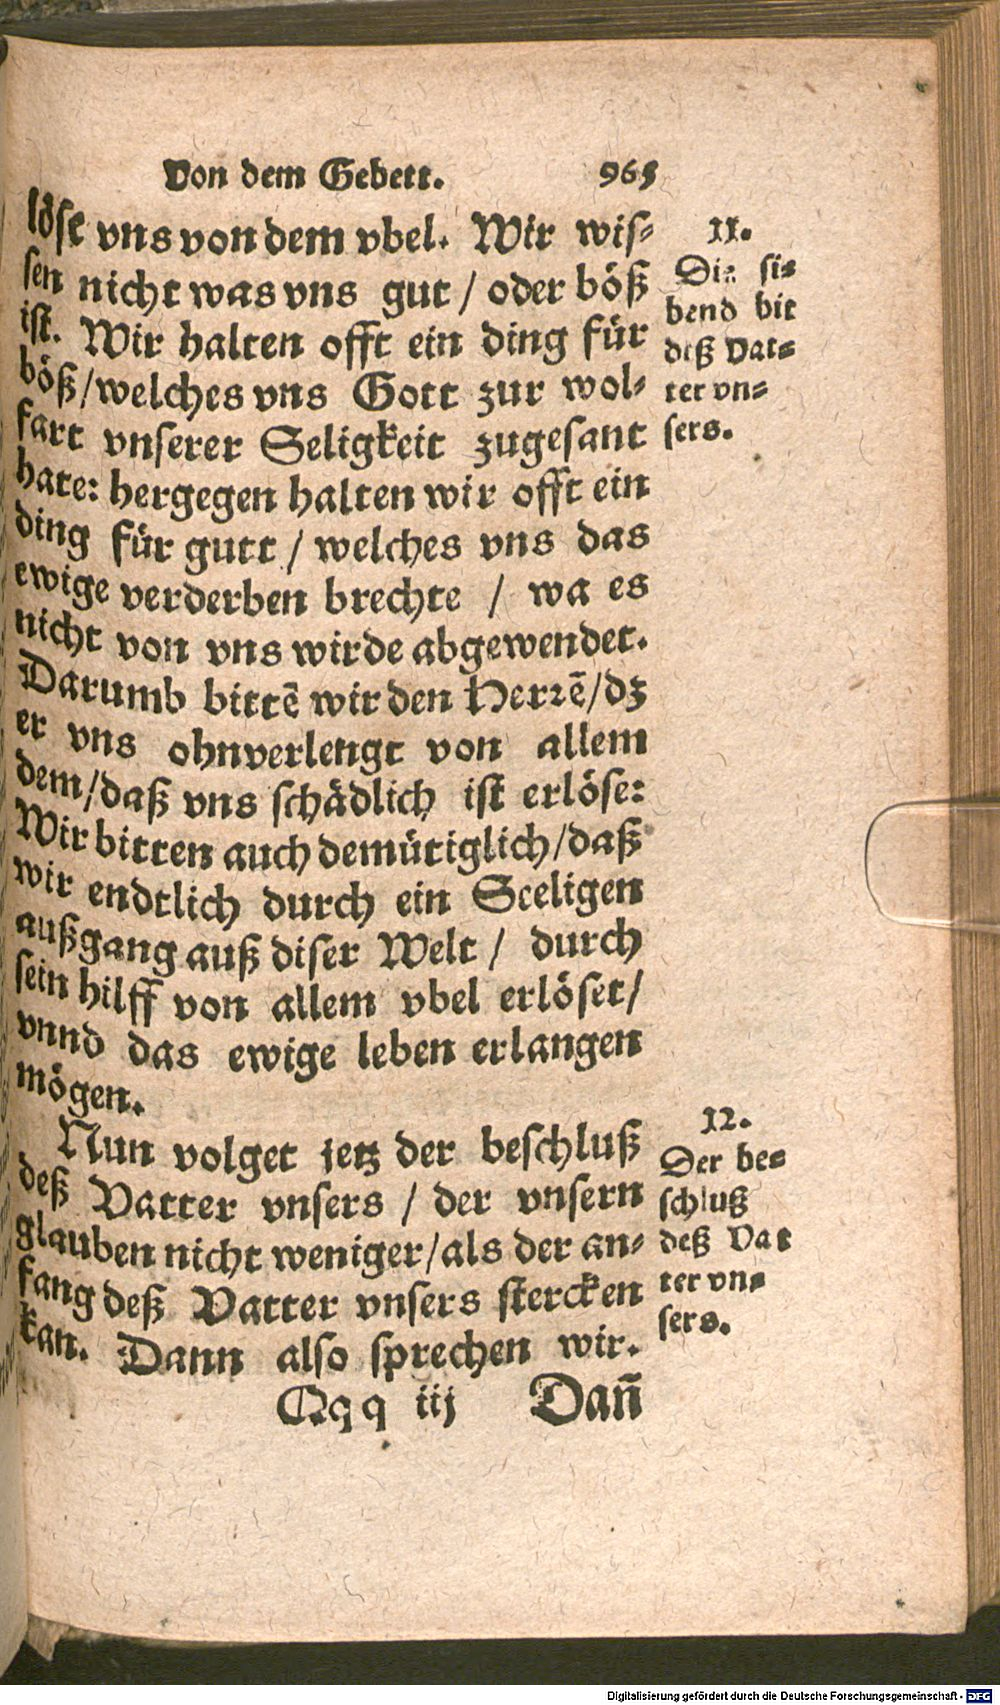 Von dem Gebett. 965
löse vns von dem vbel. Wir wis-
sen nicht was vns gut / oder böß
ist. Wir halten offt ein ding für
böß/welches vns Gott zur wol-
fart vnserer Seligkeit zugesant
hate: hergegen halten wir offt ein
ding für gutt / welches vns das
ewige verderben brechte / wa es
nicht von vns wirde abgewendet.
Darumb bittē wir den Herrē/dz
er vns ohnverlengt von allem
dem/daß vns schädlich ist erlöse:
Wir bitten auch demütiglich/daß
wir endtlich durch ein Seeligen
außgang auß diser Welt / durch
sein hilff von allem vbel erlöset/
vnnd das ewige leben erlangen
mögen.
Nun volget jetz der beschluß
deß Vatter vnsers / der vnsern
glauben nicht weniger/als der an-
fang deß Vatter vnsers stercken
kan. Dann also sprechen wir.
Qqq iij Dañ
11.
Die si-
bend bit
deß Vat-
ter vn-
sers.
12.
Der be-
schluß
deß Vat
ter vn-
sers.
Digitalisierung gefördert durch die Deutsche Forschungsgemeinschaft - DFG